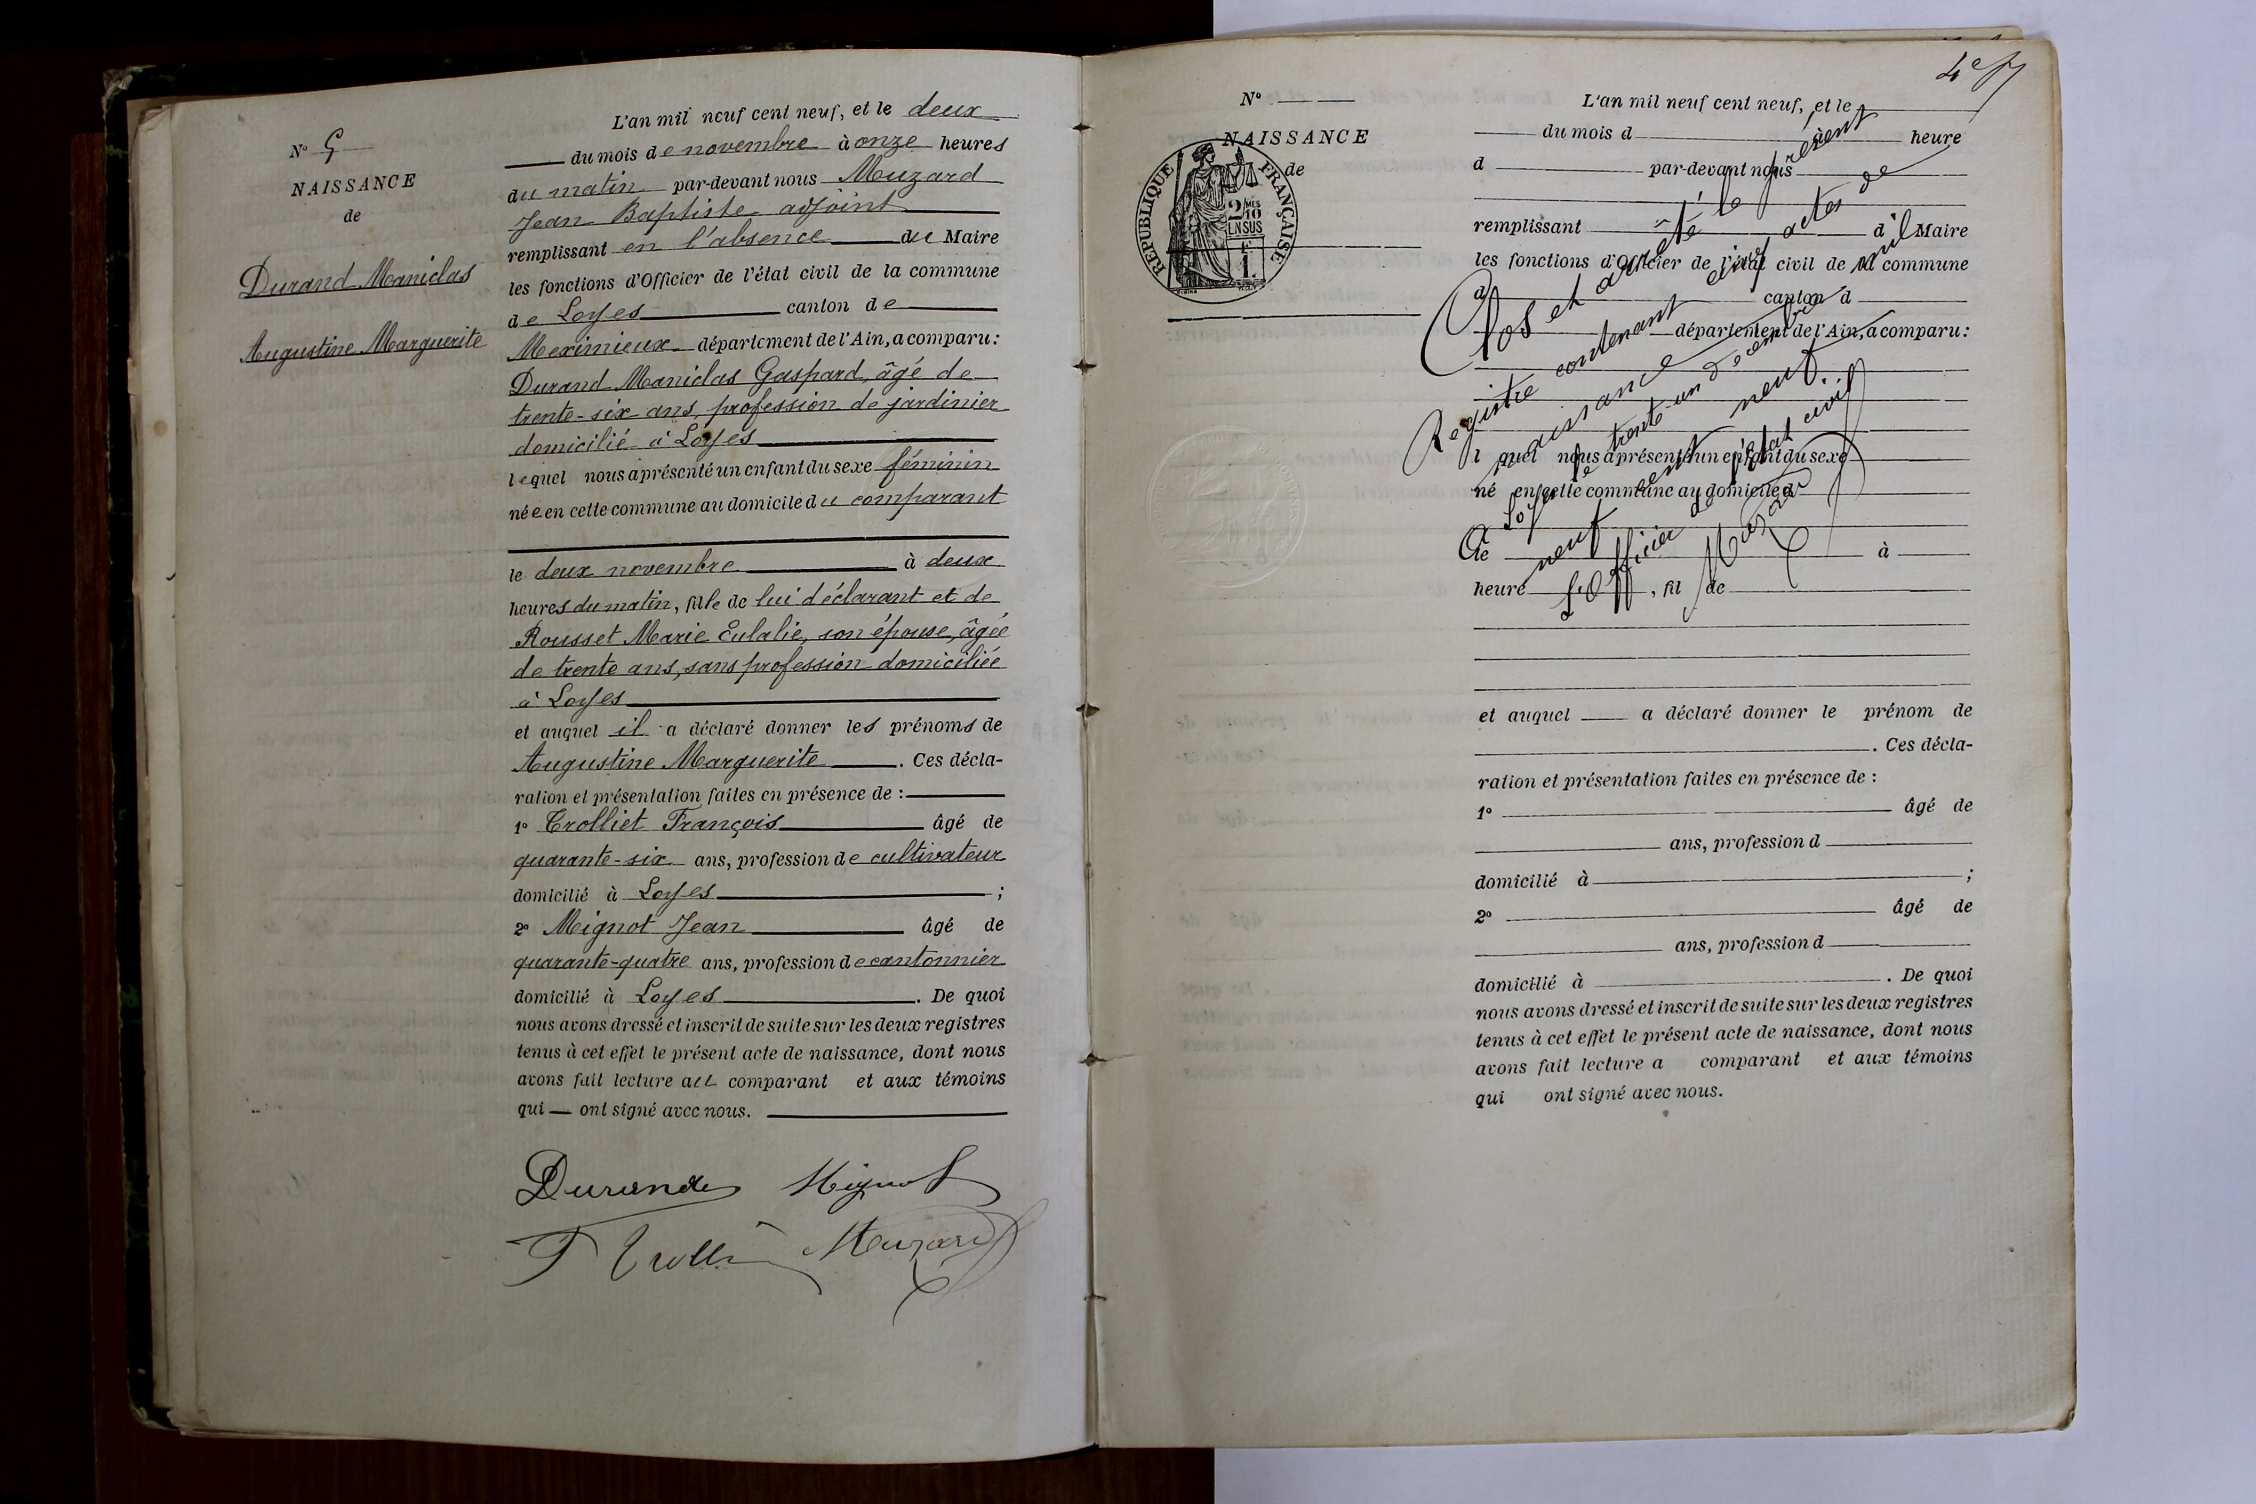 N° 5
NAISSANCE
de
Durand Maniclas
Augustine Marguerite
L'an mil neuf cent neuf, et le deux
du mois de novembre à onze heures
du matin par-devant nous Muzard
Jean Baptiste adjoint
remplissant en l'absence du Maire
les fonctions d'Officier de l'état civil de la commune
de Loyes canton de
Meximieux département de l'Ain, a comparu:
Durand Maniclas Gaspard, âgé de
trente-six ans, profession de jardinier
domicilié à Loyes
lequel nous a présenté un enfant du sexe féminin
née en cette commune au domicile du comparant
le deux novembre à deux
heures du matin, fille de lui déclarant et de
Rousset Marie Eulalie, son épouse, âgée
de trente ans, sans profession domiciliée
à Loyes
et auquel il a déclaré donner les prénoms de
Augustine Marguerite. Ces décla-
ration et présentation faites en présence de :
1° Trolliet François âgé de
quarante-six ans, profession de cultivateur
domicilié à Loyes ;
2° Mignot Jean âgé de
quarante-quatre ans, profession de cantonnier
domicilié à Loyes. De quoi
nous avons dressé et inscrit de suite sur les deux registres
tenus à cet effet le présent acte de naissance, dont nous
avons fait lecture au comparant et aux témoins
qui ont signé avec nous.
Durand Mignot
Muzard
4e
N°
NAISSANCE
de
RÉPUBLIQUE FRANÇAISE
2/10 EN SUS
L'an mil neuf cent neuf, et le
du mois d heure
d par-devant nous
remplissant d Maire
les fonctions d'Officier de l'état civil de la commune
d canton d
département de l'Ain, a comparu:
l quel nous a présenté un enfant du sexe
né en cette commune au domicile d
le à
heure , fil de
et auquel a déclaré donner le prénom de
. Ces décla-
ration et présentation faites en présence de :
1° âgé de
ans, profession d
domicilié à ;
2° âgé de
ans, profession d
domicilié à . De quoi
nous avons dressé et inscrit de suite sur les deux registres
tenus à cet effet le présent acte de naissance, dont nous
avons fait lecture a comparant et aux témoins
qui ont signé avec nous.
Clos et arrêté le présent
Registre contenant cinq actes de
naissance
A Loyes le trente-un décembre mil
neuf cent neuf.
L'Officier de l'état civil
Muzard